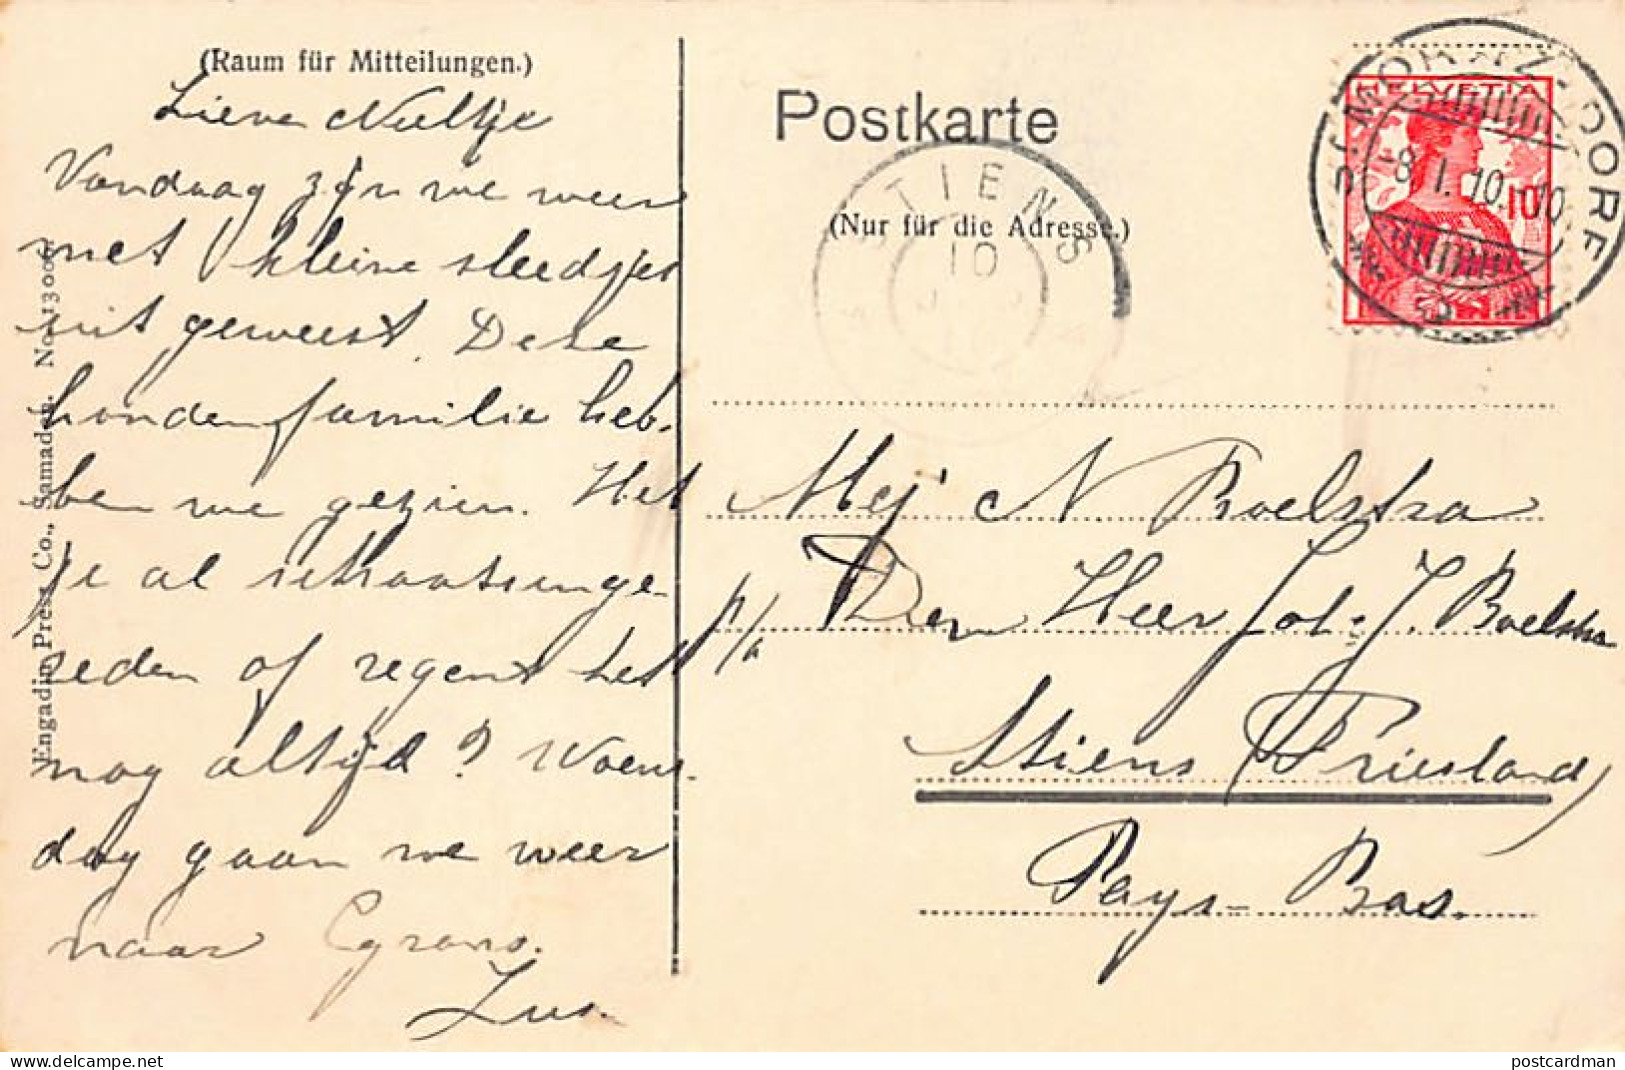 (Raum für Mitteilungen.)
Lieve Neeltje
Vandaag zijn we weer
met kleine sleedjes
uit geweest. Deze
hondenfamilie heb-
ben we gezien. Heb
je al schaatsenge-
reden of regent het
nog altijd? Woens-
dag gaan we weer
naar
Zus.
Engadin Press Co., Samaden. No. 13005
Postkarte
(Nur für die Adresse.)
STIENS
10
HELVETIA
10
ST. MORITZ-DORF
-8. I. 10.-10
Mej N Boelstra
p/a Den Heer Joh. J. Boelstra
Stiens (Friesland)
Pays-Bas.
delcampe.net
postcardman